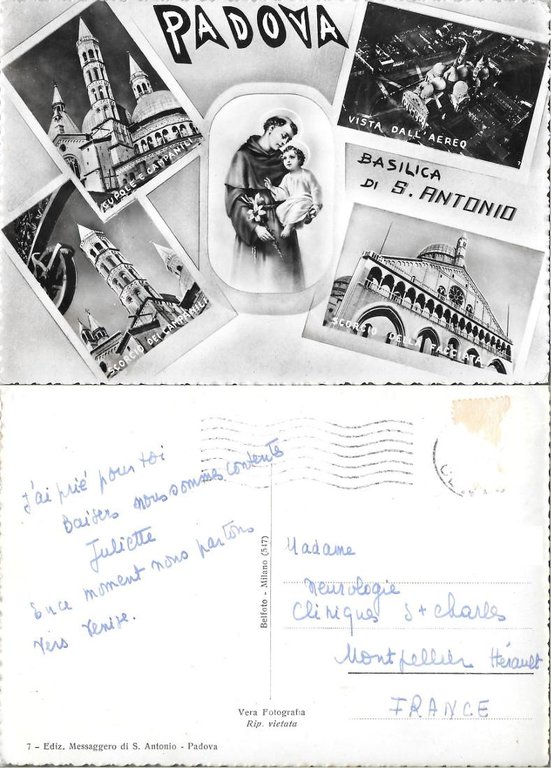 PADOVA
CUPOLE E CAMPANILI
VISTA DALL'AEREO
BASILICA
DI S. ANTONIO
SCORCIO DEI CAMPANILI
SCORCIO DELLA FACCIATA
J'ai prié pour toi
Baisers nous sommes contents
Juliette
En ce moment nous partons
vers Venise.
Belfoto - Milano (517)
Madame
Neurologie
Cliniques St Charles
Montpellier Hérault
FRANCE
Vera Fotografia
Rip. vietata
7 - Ediz. Messaggero di S. Antonio - Padova